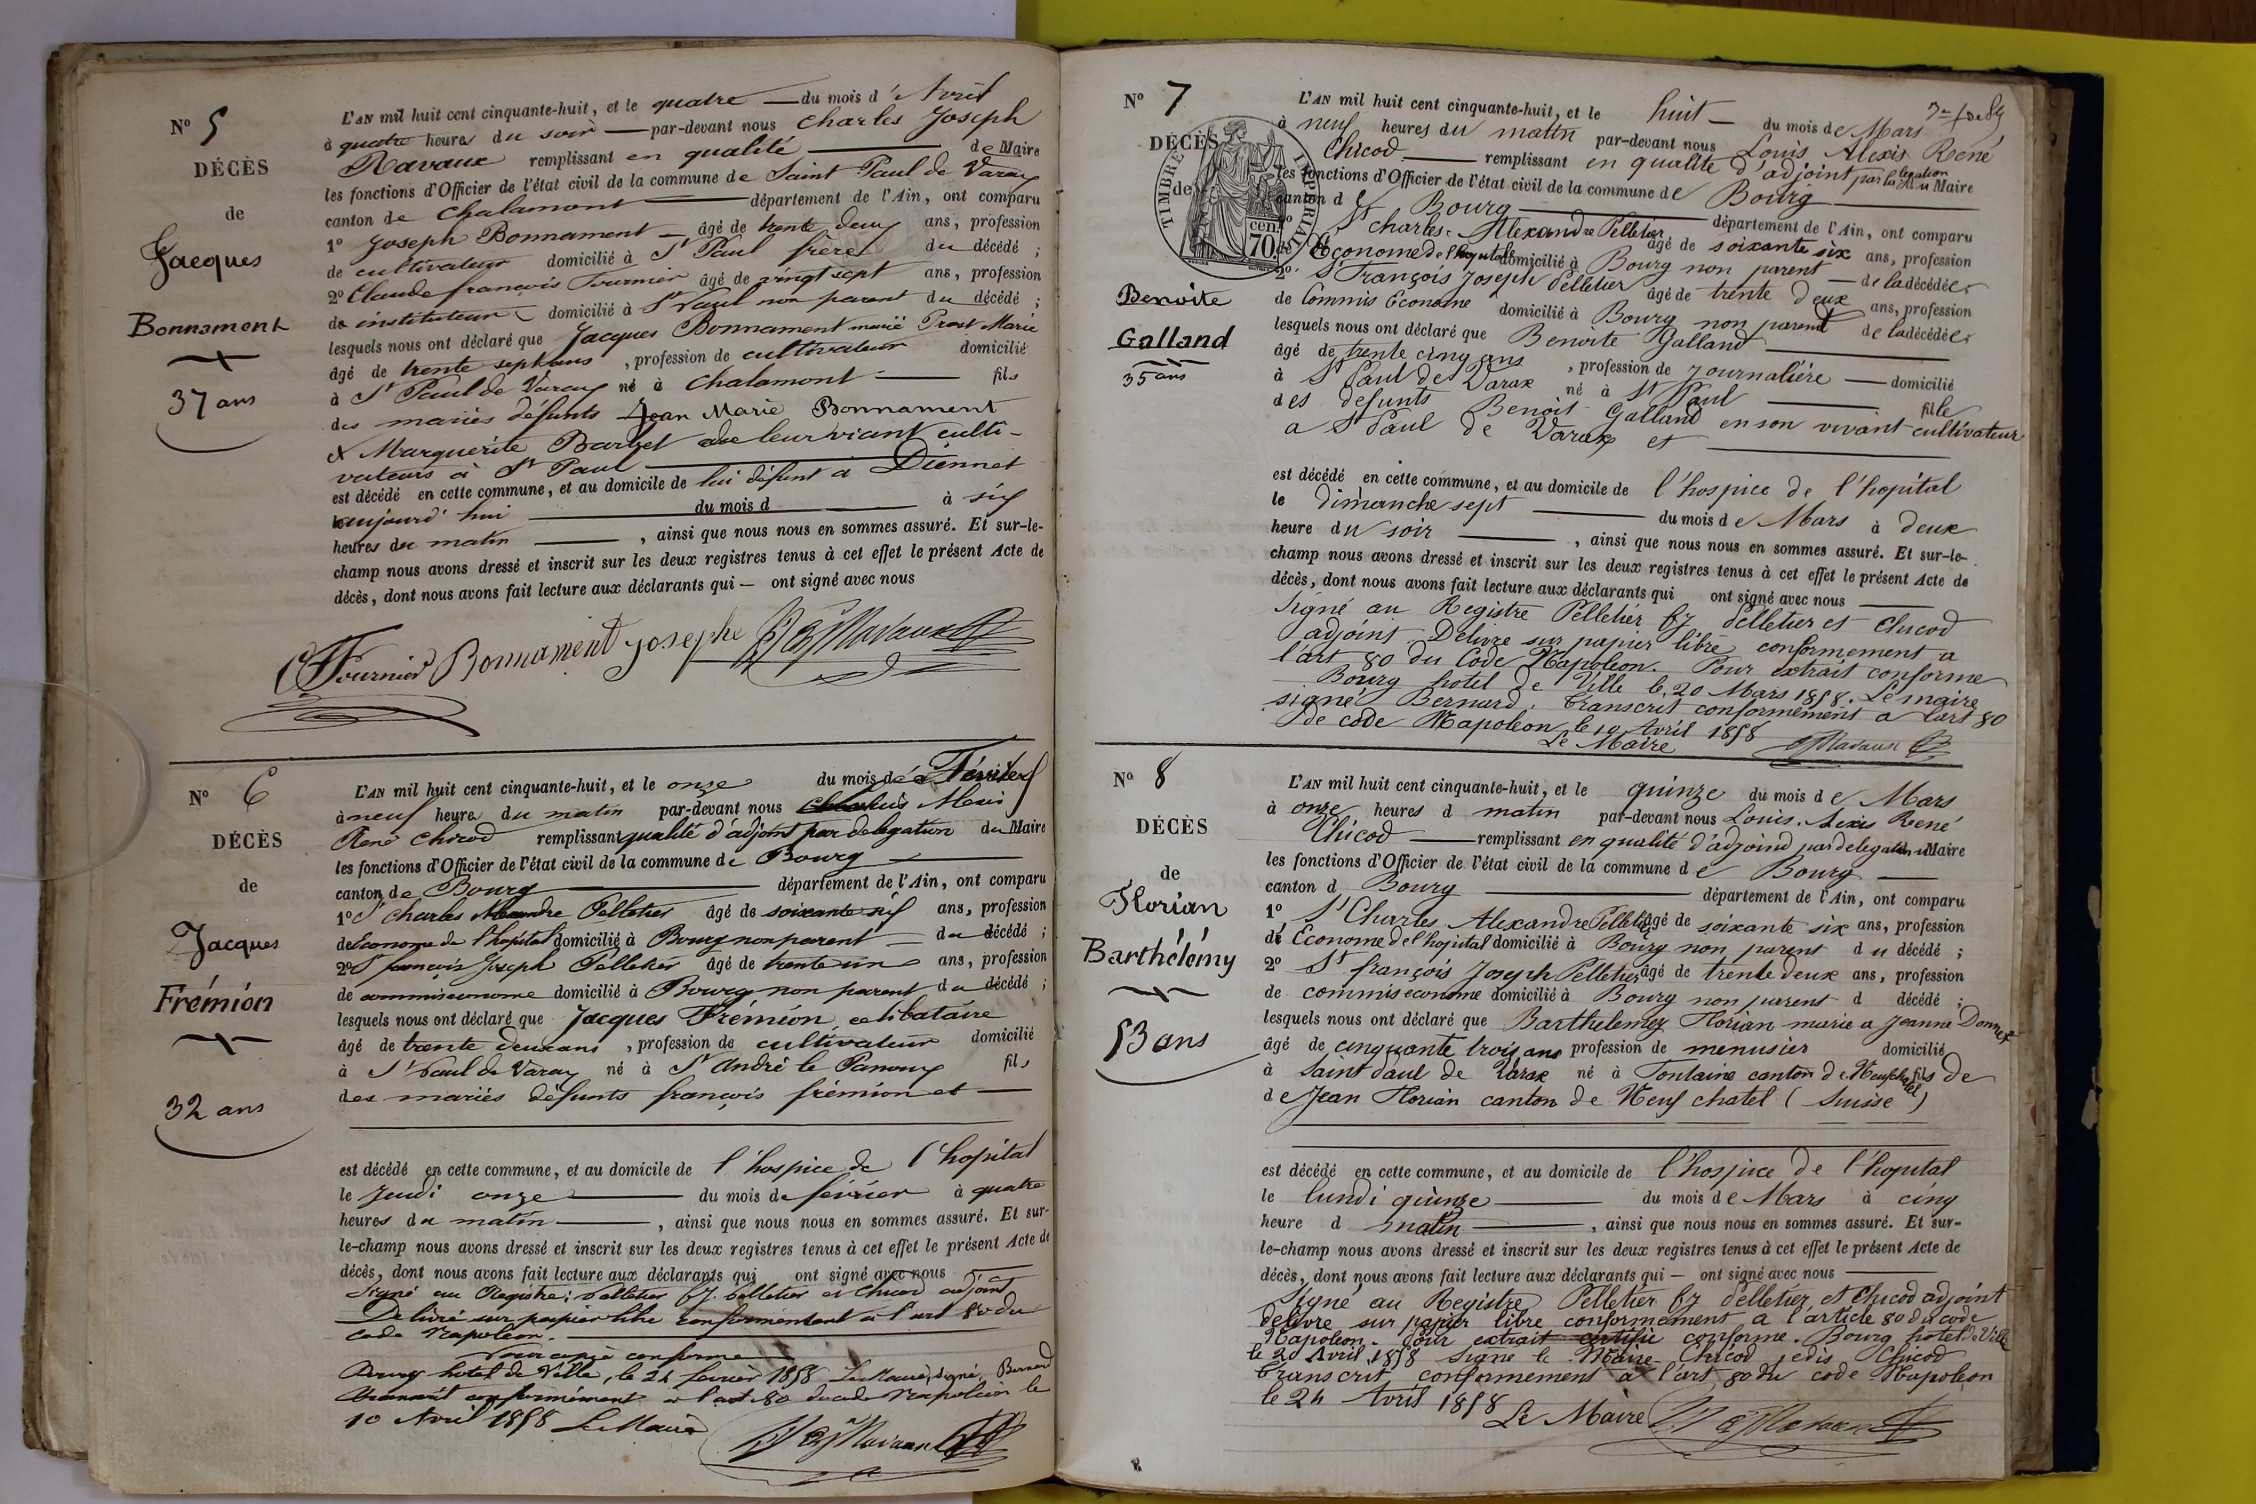 N° 5
DÉCÈS
de
Jacques
Bonnament
37 ans
L'AN mil huit cent cinquante-huit, et le quatre du mois d'Avril
à quatre heures du soir par-devant nous Charles Joseph
Ravaux remplissant en qualité de Maire
les fonctions d'Officier de l'état civil de la commune de Saint Paul de Varax
canton de Chalamont département de l'Ain, ont comparu
1° Joseph Bonnament âgé de trente deux ans, profession
de cultivateur domicilié à St Paul frère du décédé ;
2° Claude françois Fournier âgé de vingt sept ans, profession
de instituteur domicilié à St Paul non parent du décédé ;
lesquels nous ont déclaré que Jacques Bonnament marié Marie
âgé de trente sept ans, profession de cultivateur domicilié
à St Paul de Varax né à Chalamont fils
des mariés défunts Jean Marie Bonnament
& Marguerite de leur vivant culti-
vateurs à St Paul
est décédé en cette commune, et au domicile de lui défunt à
aujourd'hui du mois d à six
heures du matin, ainsi que nous nous en sommes assuré. Et sur-le-
champ nous avons dressé et inscrit sur les deux registres tenus à cet effet le présent Acte de
décès, dont nous avons fait lecture aux déclarants qui — ont signé avec nous
Fournier Bonnament Josephe Ravaux
N° 6
DÉCÈS
de
Jacques
Frémion
32 ans
L'AN mil huit cent cinquante-huit, et le onze du mois de Février
à neuf heures du matin par-devant nous Alexis
René Chicod remplissant qualité d'adjoint par delegation du Maire
les fonctions d'Officier de l'état civil de la commune de Bourg
canton de Bourg département de l'Ain, ont comparu
1° Sr Charles Alexandre Pelletier âgé de soixante six ans, profession
de Econome de l'hopital domicilié à Bourg non parent du décédé ;
2° Sr françois Joseph Pelletier âgé de trente un ans, profession
de commis econome domicilié à Bourg non parent du décédé ;
lesquels nous ont déclaré que Jacques Frémion celibataire
âgé de trente deux ans, profession de cultivateur domicilié
à St Paul de Varax né à St André le Panoux fils
des mariés défunts françois frémion et
est décédé en cette commune, et au domicile de l'hospice de l'hopital
le Jeudi onze du mois de février à quatre
heures du matin, ainsi que nous nous en sommes assuré. Et sur-
le-champ nous avons dressé et inscrit sur les deux registres tenus à cet effet le présent Acte de
décès, dont nous avons fait lecture aux déclarants qui ont signé avec nous
Signé au Régistre: Pelletier fz. Pelletier et Chicod adjoint
Delivré sur papier libre conformément à l'art 80 du
code Napoleon.
Pour copie conforme
Bourg hotel de Ville, le 24 fevrier 1858 Le Maire, signé, Bernard
Transcrit conformément à l'art 80 du code Napoleon le
10 Avril 1858 Le Maire Ravaux
N° 7
DÉCÈS
de
TIMBRE IMPÉRIAL
70 cen.
Benoite
Galland
35 ans
L'AN mil huit cent cinquante-huit, et le huit du mois de Mars
à neuf heures du matin par-devant nous Louis Alexis René
Chicod remplissant en qualité d'adjoint par delegation du Maire
les fonctions d'Officier de l'état civil de la commune de Bourg
canton de Bourg département de l'Ain, ont comparu
1° Sr Charles Alexandre Pelletier âgé de soixante six ans, profession
de Économe de l'hopital domicilié à Bourg non parent de la décédée
2° Sr François Joseph Pelletier âgé de trente deux ans, profession
de Commis Econome domicilié à Bourg non parent de la décédée
lesquels nous ont déclaré que Benoite Galland
âgé de trente cinq ans, profession de Journalière domicilié
à St Paul de Varax né à St Paul fille
des defunts Benoit Galland en son vivant cultivateur
a St Paul de Varax et
est décédé en cette commune, et au domicile de l'hospice de l'hopital
le dimanche sept du mois de Mars à deux
heure du soir, ainsi que nous nous en sommes assuré. Et sur-le-
champ nous avons dressé et inscrit sur les deux registres tenus à cet effet le présent Acte de
décès, dont nous avons fait lecture aux déclarants qui ont signé avec nous
Signé au Registre Pelletier fz Pelletier et Chicod
adjoint. Delivre sur papier libre conformement a
l'art 80 du Code Napoleon. Pour extrait conforme
Bourg hotel de Ville le 20 Mars 1858. Le maire
signé Bernard. Transcrit conformément a l'art 80
de code Napoleon le 10 Avril 1858
Le Maire Ravaux
N° 8
DÉCÈS
de
Florian
Barthélémy
53 ans
L'AN mil huit cent cinquante-huit, et le quinze du mois de Mars
à onze heures d matin par-devant nous Louis. Alexis René
Chicod remplissant en qualité d'adjoind par delegation du Maire
les fonctions d'Officier de l'état civil de la commune de Bourg
canton d Bourg département de l'Ain, ont comparu
1° Sr Charles Alexandre Pelletier âgé de soixante six ans, profession
de Économe de l'hopital domicilié à Bourg non parent du décédé ;
2° Sr françois Joseph Pelletier âgé de trente deux ans, profession
de commis econome domicilié à Bourg non parent d décédé ;
lesquels nous ont déclaré que Barthelemy Florian marie a Jeanne
âgé de cinquante trois ans profession de menusier domicilié
à Saint Paul de Varax né à Fontaine canton de Neufchatel fils de
de Jean Florian canton de Neuf chatel ( Suisse )
est décédé en cette commune, et au domicile de l'hospice de l'hopital
le lundi quinze du mois de Mars à cinq
heure d matin, ainsi que nous nous en sommes assuré. Et sur-
le-champ nous avons dressé et inscrit sur les deux registres tenus à cet effet le présent Acte de
décès, dont nous avons fait lecture aux déclarants qui — ont signé avec nous
Signé au Registre Pelletier fz Pelletier et Chicod adjoint
delivre sur papier libre conformement a l'article 80 du code
Napoleon. Pour extrait certifié conforme. Bourg hotel de Ville
le 20 Avril 1858 Signé le Maire Chicod jedis Chicod
Transcrit conformement a l'art 80 du code Napoleon
le 24 Avril 1858
Le Maire Ravaux